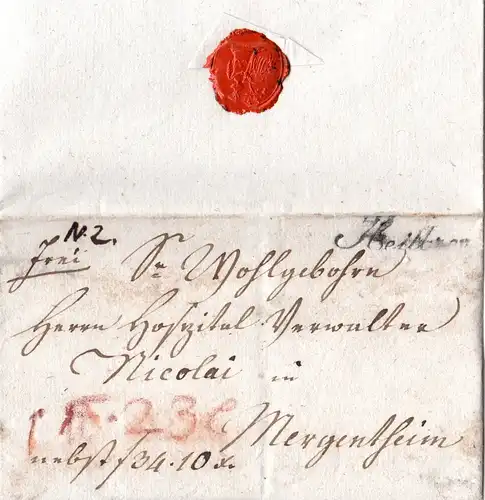 N. 2.
frei
Sr Wohlgebohrn
Herrn Hospital Verwalter
Nicolai in
Mergentheim
nebst f 34. 10 x.